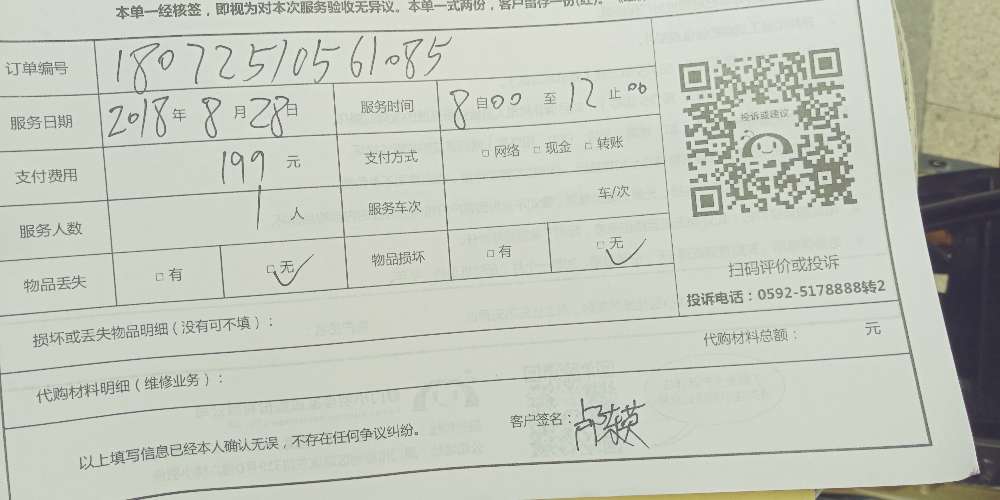 本单一经核签，即视为对本次服务验收无异议。本单一式两份，客户留存一份(红)。
订单编号 18072510561085
服务日期 2018年 8月28日 服务时间 8自00 至 12止00
投诉或建议
支付费用 199 元 支付方式 □ 网络 □ 现金 □ 转账
服务人数 1 人 服务车次 车/次
物品丢失 □ 有 □ 无 物品损坏 □ 有 □ 无
扫码评价或投诉
投诉电话：0592-5178888转2
损坏或丢失物品明细（没有可不填）：
代购材料总额： 元
代购材料明细（维修业务）：
客户签名：
以上填写信息已经本人确认无误，不存在任何争议纠纷。